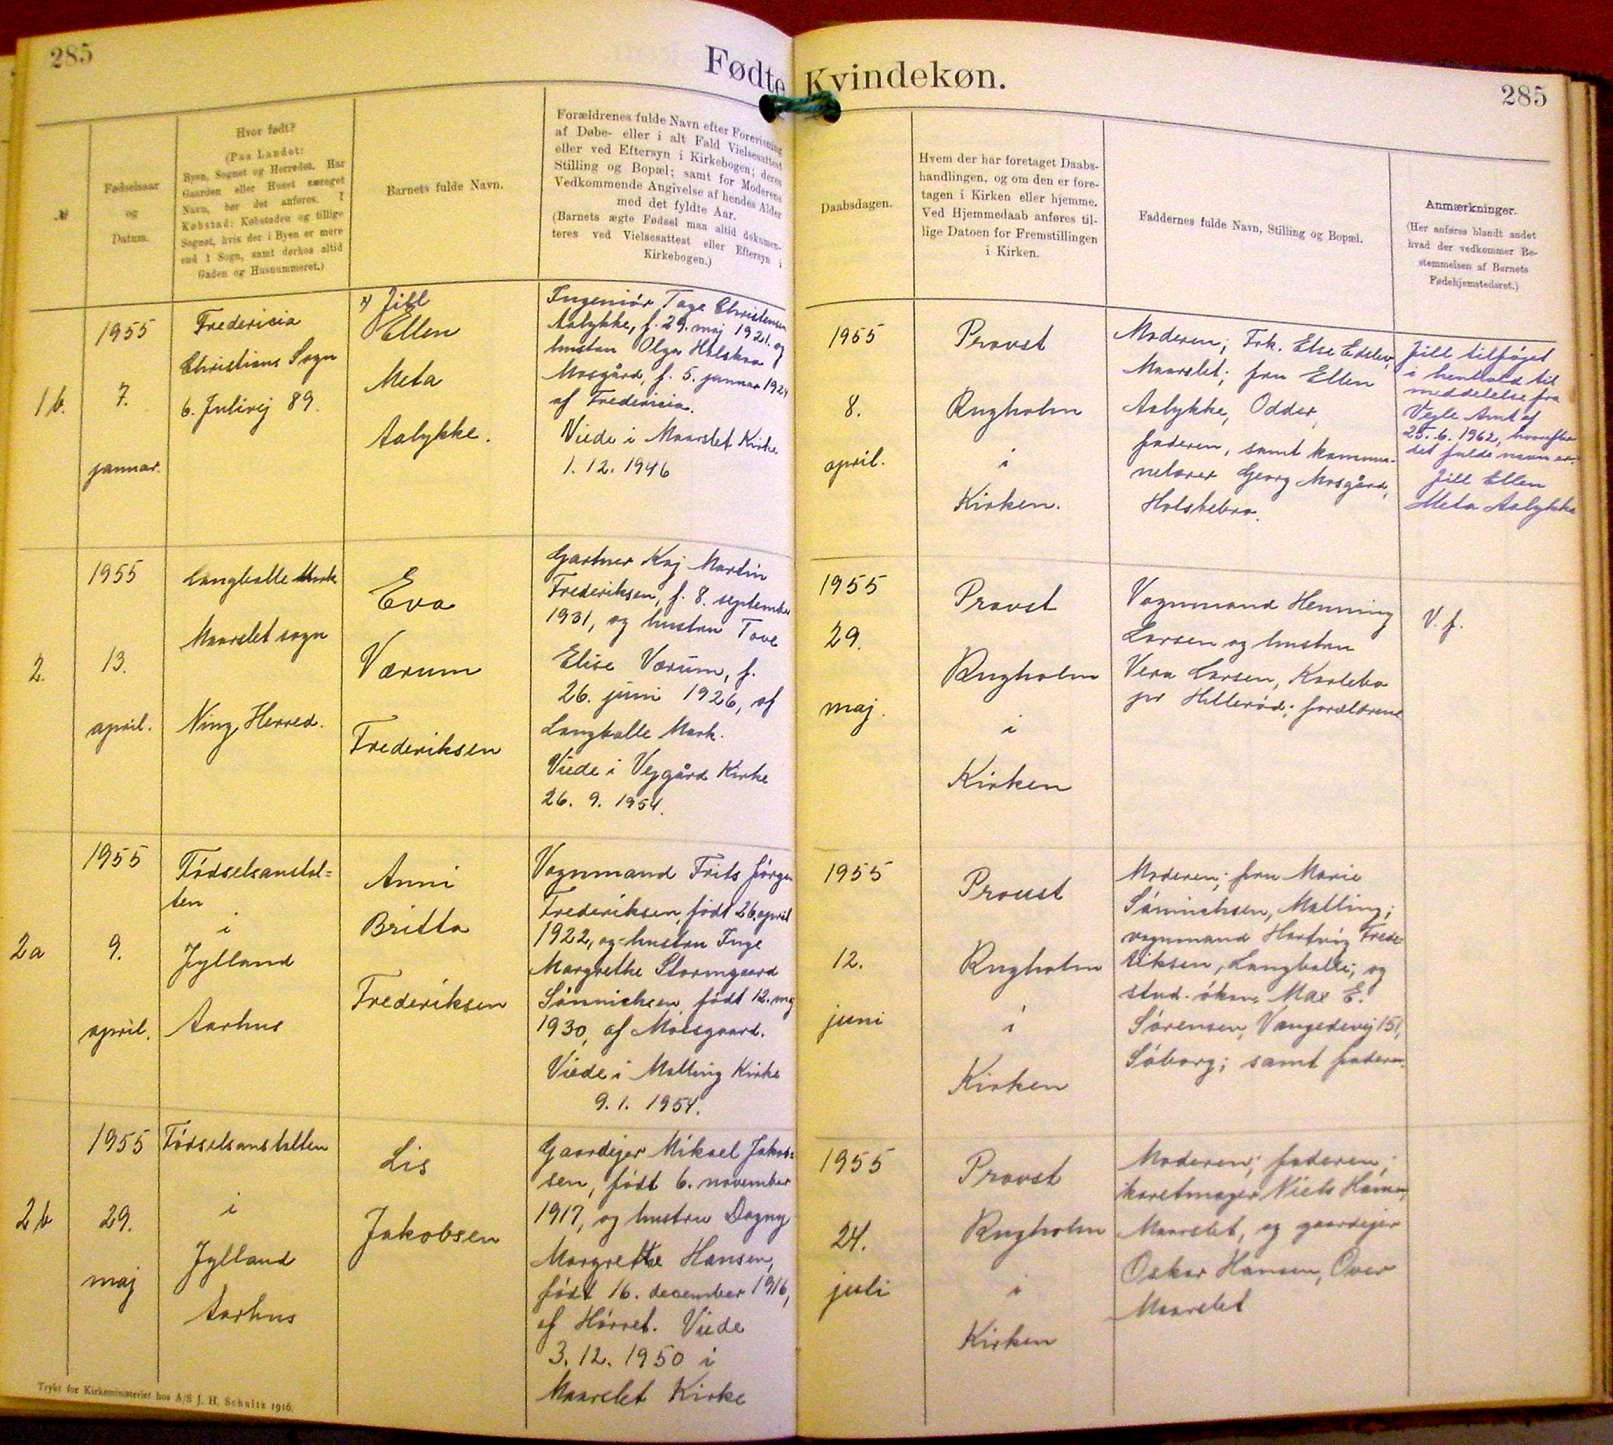 285
Fødte Kvindekøn.
285
№
Fødselsaar
og
Datum.
Hvor født?
(Paa Landet:
Byen, Sognet og Herredet. Har
Gaarden eller Huset særeget
Navn, bør det anføres. I
Købstad: Købstaden og tillige
Sognet, hvis der i Byen er mere
end 1 Sogn, samt derhos altid
Gaden og Husnummeret.)
Barnets fulde Navn.
Forældrenes fulde Navn efter Forevisning
af Døbe- eller i alt Fald Vielsesattest
eller ved Eftersyn i Kirkebogen; deres
Stilling og Bopæl; samt for Moderens
Vedkommende Angivelse af hendes Alder
med det fyldte Aar.
(Barnets ægte Fødsel maa altid dokumen-
teres ved Vielsesattest eller Eftersyn i
Kirkebogen.)
Daabsdagen.
Hvem der har foretaget Daabs-
handlingen, og om den er fore-
tagen i Kirken eller hjemme.
Ved Hjemmedaab anføres til-
lige Datoen for Fremstillingen
i Kirken.
Faddernes fulde Navn, Stilling og Bopæl.
Anmærkninger.
(Her anføres blandt andet
hvad der vedkommer Be-
stemmelsen af Barnets
Fødehjemstedsret.)
1b.
1955
7.
januar.
Fredericia
Christians Sogn
6. Julivej 89.
Jill
Ellen
Meta
Aalykke.
Ingeniør Tage Christensen
Aalykke, f. 29. maj 1921. og
hustru Olga
Mosgård, f. 5. januar 1924
af Fredericia.
Viede i Maarslet Kirke
1. 12. 1946
1955
8.
april.
Provst
Rugholm
i
Kirken.
Moderen; Frk. Else
Maarslet; fru Ellen
Aalykke, Odder,
faderen, samt kommu-
nelærer Georg Mosgård,
Holstebro.
Jill tilføjet
i henhold til
meddelelse fra
Vejle Amt af
25. 6. 1962, hvorefter
det fulde navn er:
Jill Ellen
Meta Aalykke
2.
1955
13.
april.
Langballe Mark
Maarslet sogn
Ning Herred.
Eva
Værum
Frederiksen
Gartner Kaj Martin
Frederiksen, f. 8. september
1931, og hustru Tove
Elise Værum, f.
26. juni 1926, af
Langballe Mark.
Viede i Vejgård Kirke
26. 9. 1954.
1955
29.
maj.
Provst
Rugholm
i
Kirken
Vognmand Henning
Larsen og hustru
Vera Larsen, Karlebo
pr Hillerød; forældrene
V. f.
2a
1955
9.
april.
Fødselsanstal=
ten
i
Jylland
Aarhus
Anni
Britta
Frederiksen
Vognmand Frits Jørgen
Frederiksen, født 26. april
1922, og hustru Inge
Margrethe Stormgaard
Sønnichsen, født 12. maj
1930, af Moesgaard.
Viede i Malling Kirke
9. 1. 1954.
1955
12.
juni
Provst
Rugholm
i
Kirken
Moderen; fru Marie
Sønnichsen, Malling;
vognmand Hartvig Frede-
riksen, Langballe; og
stud. økon. Max E.
Sørensen, Vangedevej 151,
Søborg; samt faderen.
2b
1955
29.
maj
Fødselsanstalten
i
Jylland
Aarhus
Lis
Jakobsen
Gaardejer Mikael Jakob-
sen, født 6. november
1917, og hustru Dagny
Margrethe Hansen,
født 16. december 1916,
af Hørret. Viede
3. 12. 1950 i
Maarslet Kirke
1955
24.
juli
Provst
Rugholm
i
Kirken
Moderen; faderen;
karetmager Niels
Maarslet, og gaardejer
Oskar Hansen, Over
Maarslet
Trykt for Kirkeministeriet hos A/S J. H. Schultz 1916.